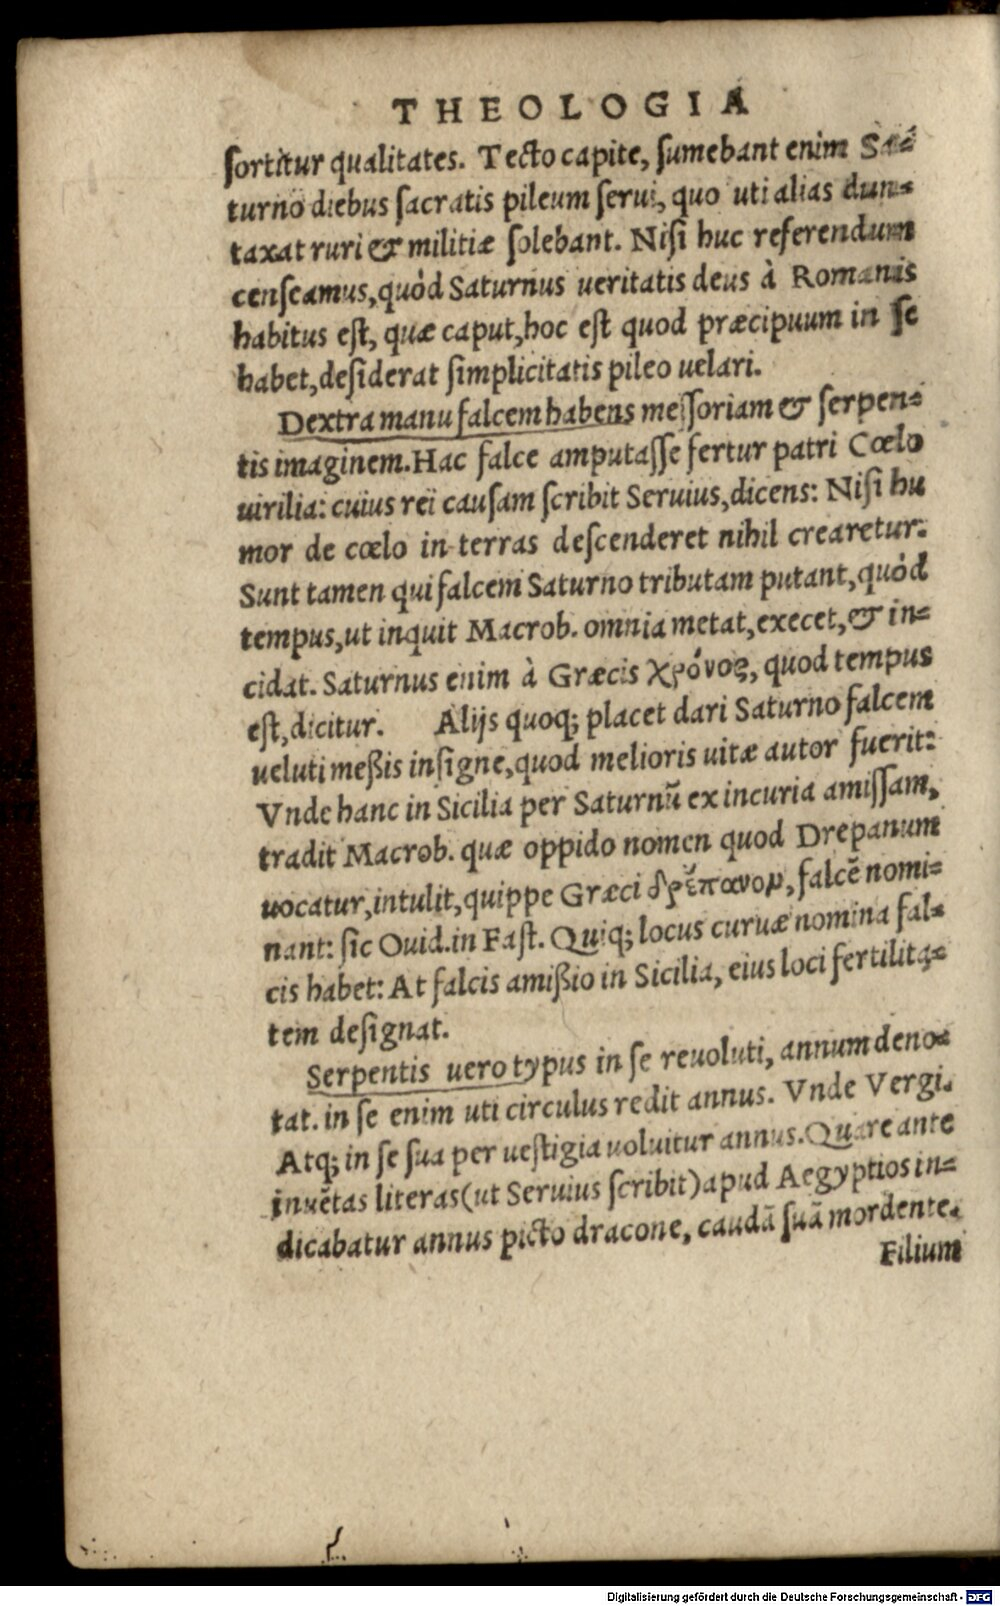 THEOLOGIA
ſortitur qualitates. Tecto capite, ſumebant enim Sa-
turno diebus ſacratis pileum ſerui, quo uti alias dun-
taxat ruri & militiæ ſolebant. Niſi huc referendum
cenſeamus, quòd Saturnus ueritatis deus à Romanis
habitus eſt, quæ caput, hoc eſt quod præcipuum in ſe
habet, deſiderat ſimplicitatis pileo uelari.
Dextra manu falcem habens meſſoriam & ſerpen-
tis imaginem. Hac falce amputaſſe fertur patri Cœlo
uirilia: cuius rei cauſam ſcribit Seruius, dicens: Niſi hu
mor de cœlo in terras deſcenderet nihil crearetur.
Sunt tamen qui falcem Saturno tributam putant, quòd
tempus, ut inquit Macrob. omnia metat, execet, & in-
cidat. Saturnus enim à Græcis χρόνος, quod tempus
eſt, dicitur. Alijs quoq; placet dari Saturno falcem
ueluti meßis inſigne, quod melioris uitæ autor fuerit:
Vnde hanc in Sicilia per Saturnũ ex incuria amiſſam,
tradit Macrob. quæ oppido nomen quod Drepanum
uocatur, intulit, quippe Græci δρέπανον, falcẽ nomi-
nant: ſic Ouid. in Faſt. Quiq; locus curuæ nomina fal-
cis habet: At falcis amißio in Sicilia, eius loci fertilita-
tem deſignat.
Serpentis uero typus in ſe reuoluti, annum deno-
tat. in ſe enim uti circulus redit annus. Vnde Vergi.
Atq; in ſe ſua per ueſtigia uoluitur annus. Quare ante
inuẽtas literas (ut Seruius ſcribit) apud Aegyptios in-
dicabatur annus picto dracone, caudã ſuã mordente.
Filium
Digitalisierung gefördert durch die Deutsche Forschungsgemeinschaft - DFG